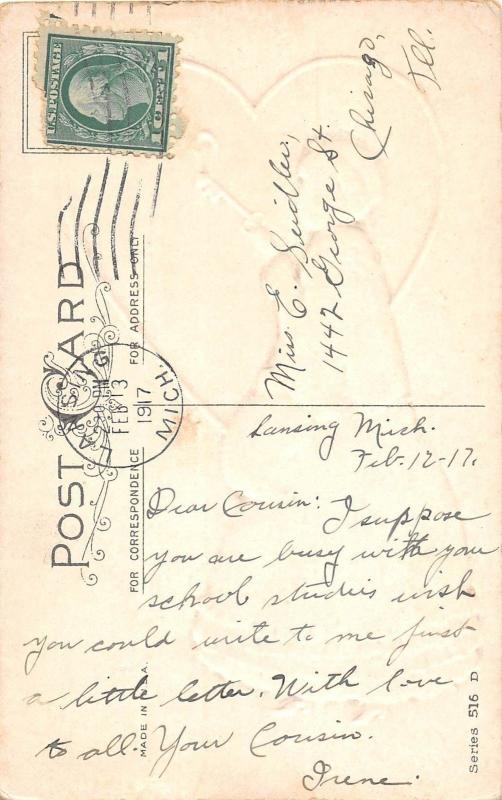 U.S. POSTAGE
1 CENT 1
POST CARD
FOR ADDRESS ONLY
FOR CORRESPONDENCE
LANSING
FEB 13
1917
MICH.
Miss E. Seidler,
1442 George St.
Chicago,
Ill.
Lansing Mich.
Feb. 12-17.
Dear Cousin: I suppose
you are busy with your
school studies wish
you could write to me just
a little letter. With love
to all. Your Cousin.
Irene.
MADE IN U.S.A.
Series 516 D